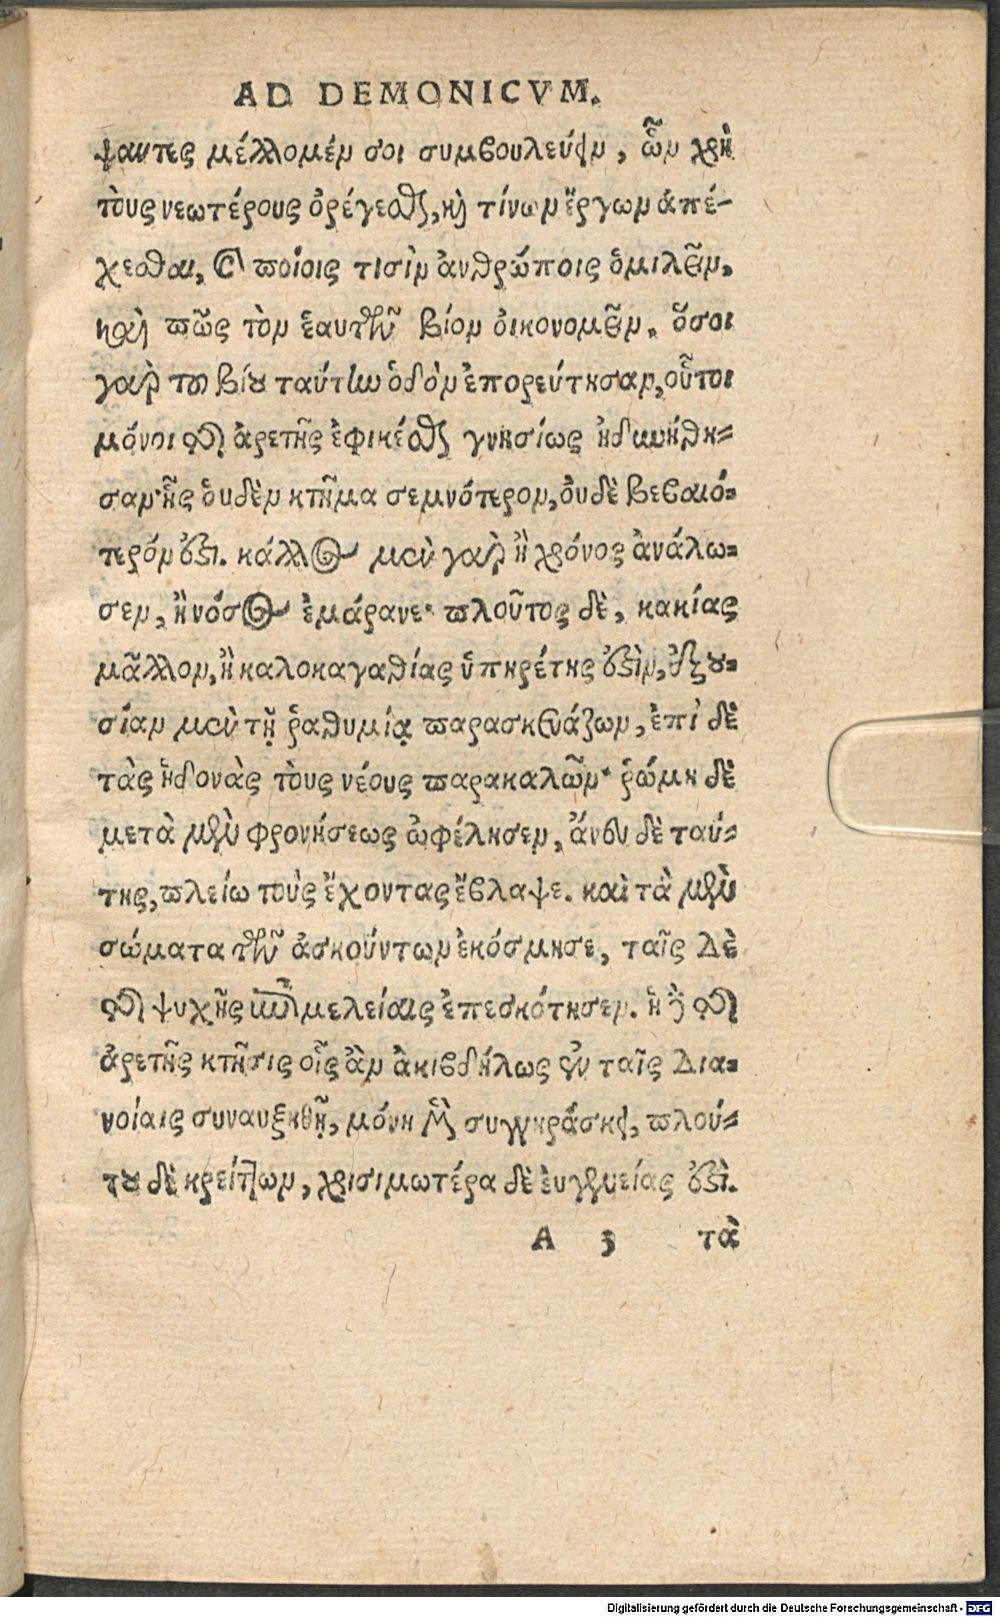 AD DEMONICVM.
ψαντες μέλλομέν σοι συμβουλεύειν, ὧν χρὴ
τοὺς νεωτέρους ὀρέγεσθαι, καὶ τίνων ἔργων ἀπέ-
χεσθαι, καὶ ποίοις τισὶν ἀνθρώποις ὁμιλεῖν,
καὶ πῶς τὸν ἑαυτῶν βίον οἰκονομεῖν. ὅσοι
γὰρ του βίου ταύτην ὁδὸν ἐπορεύτησαν, οὗτοι
μόνοι τῆς ἀρετῆς ἐφικέσθαι γνησίως ἠδυνήθη-
σαν· ἧς ὁυδὲν κτῆμα σεμνότερον, ὀυδὲ βεβαιό-
τερόν ἐστι. κάλλος μὲν γὰρ ἢ χρόνος ἀνάλω-
σεν, ἢ νόσος ἐμάρανε· πλοῦτος δὲ, κακίας
μᾶλλον, ἢ καλοκαγαθίας ὑπηρέτης ἐστὶν, ἐξου-
σίαν μὲν τῇ ῥαθυμίᾳ παρασκευάζων, ἐπὶ δὲ
τὰς ἡδονὰς τοὺς νέους παρακαλῶν· ῥώμη δὲ
μετὰ μὲν φρονήσεως ὠφέλησεν, ἄνευ δὲ ταύ-
της, πλείω τοὺς ἔχοντας ἔβλαψε. καὶ τὰ μὲν
σώματα τῶν ἀσκούντων ἐκόσμησε, ταῖς δὲ
τῆς ψυχῆς ἐπιμελείαις ἐπεσκότησεν. ἡ δὲ τῆς
ἀρετῆς κτῆσις οἷς ἂν ἀκιβδήλως ἐν ταῖς δια-
νοίαις συναυξηθῇ, μόνη μὲν συγγηράσκει, πλού-
του δὲ κρείττων, χρισιμωτέρα δὲ ἐυγενείας ἐστὶ.
A 3 τὰ
Digitalisierung gefördert durch die Deutsche Forschungsgemeinschaft - DFG